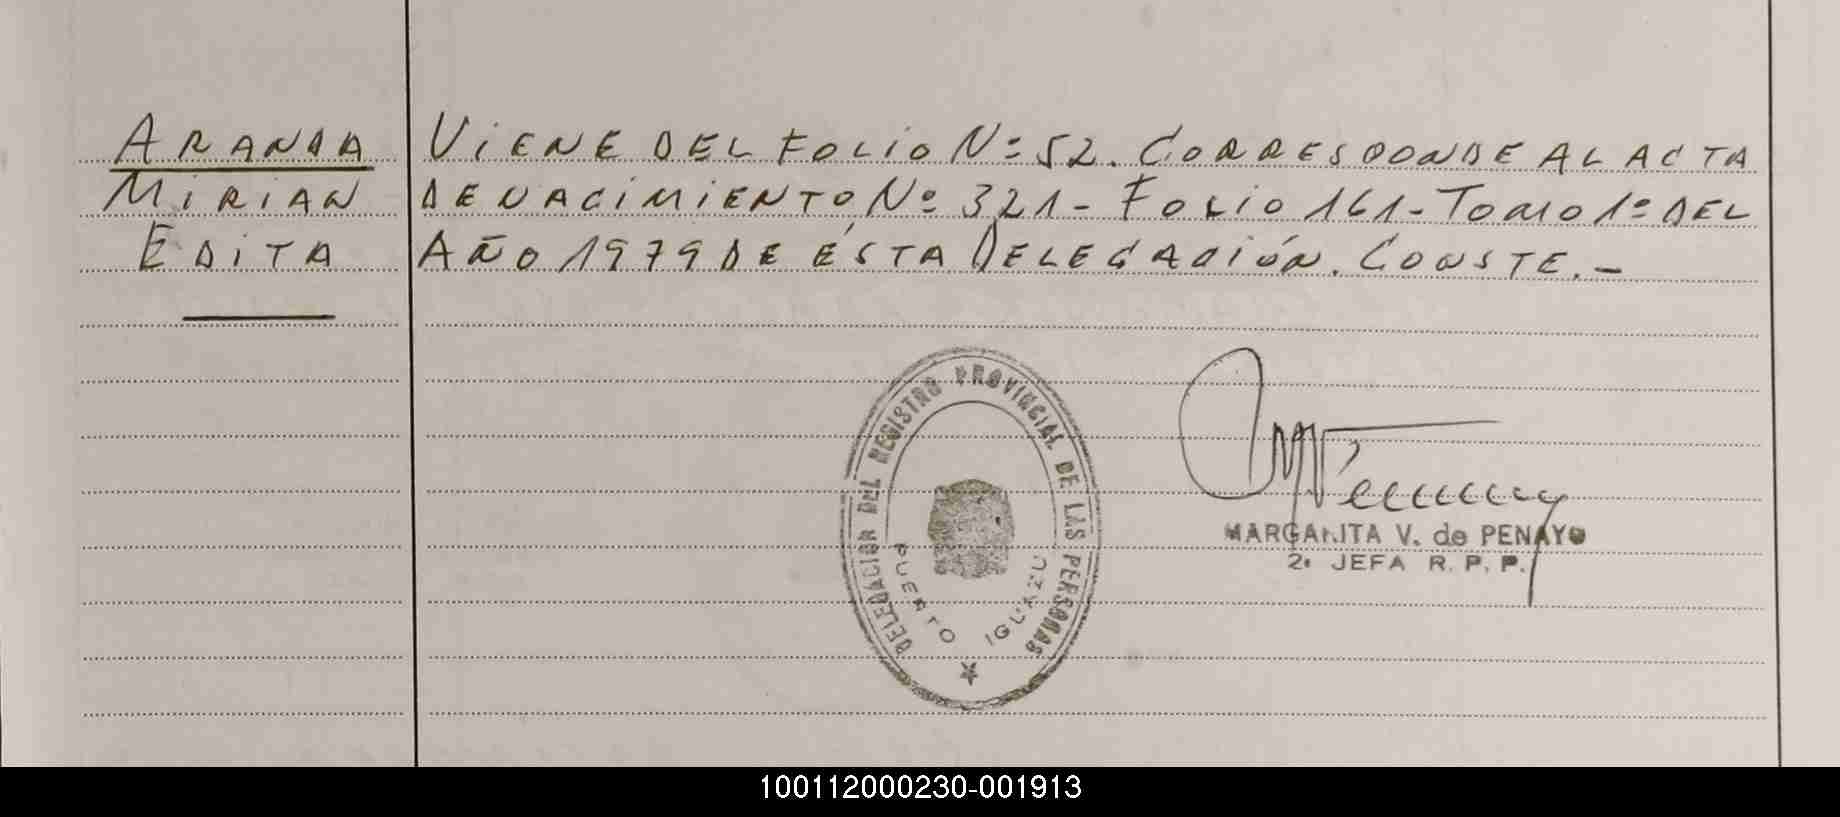 ARANDA
MIRIAN
EDITA
VIENE DEL FOLIO Nº 52. CORRESPONDE AL ACTA
DE NACIMIENTO Nº 321- FOLIO 161- TOMO 1º DEL
AÑO 1979 DE ÉSTA DELEGACIÓN. CONSTE.-
DELEGACION DEL REGISTRO PROVINCIAL DE LAS PERSONAS
PUERTO IGUAZU
MARGARITA V. de PENAYO
2ª JEFA R. P. P.
100112000230-001913